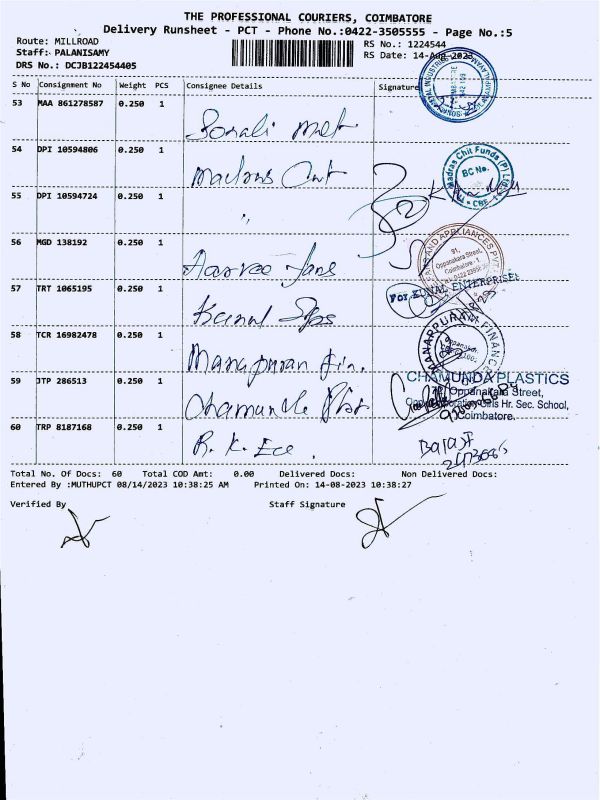 THE PROFESSIONAL COURIERS, COIMBATORE
Delivery Runsheet - PCT - Phone No.:0422-3505555 - Page No.:5
Route: MILLROAD
RS No.: 1224544
Staff: PALANISAMY
RS Date: 14-Aug-2023
DRS No.: DCJB122454405
S No Consignment No Weight PCS Consignee Details Signature
53 MAA 861278587 0.250 1
Sonali
54 DPI 10594806 0.250 1
Madras Chit Funds (P) Ltd
BC No.
CBE
55 DPI 10594724 0.250 1
"
56 MGD 138192 0.250 1
91,
Oppanakara Street,
Coimbatore - 1.
57 TRT 1065195 0.250 1
For KUNAL ENTERPRISES
58 TCR 16982478 0.250 1
Manapuram Fin.
MANAPPURAM FINANCE
59 JTP 286513 0.250 1
CHAMUNDA PLASTICS
Oppanakara Street,
Girls Hr. Sec. School,
Coimbatore.
60 TRP 8187168 0.250 1
R. K. Ece.
Balaji
Total No. Of Docs: 60 Total COD Amt: 0.00 Delivered Docs: Non Delivered Docs:
Entered By :MUTHUPCT 08/14/2023 10:38:25 AM Printed On: 14-08-2023 10:38:27
Verified By Staff Signature